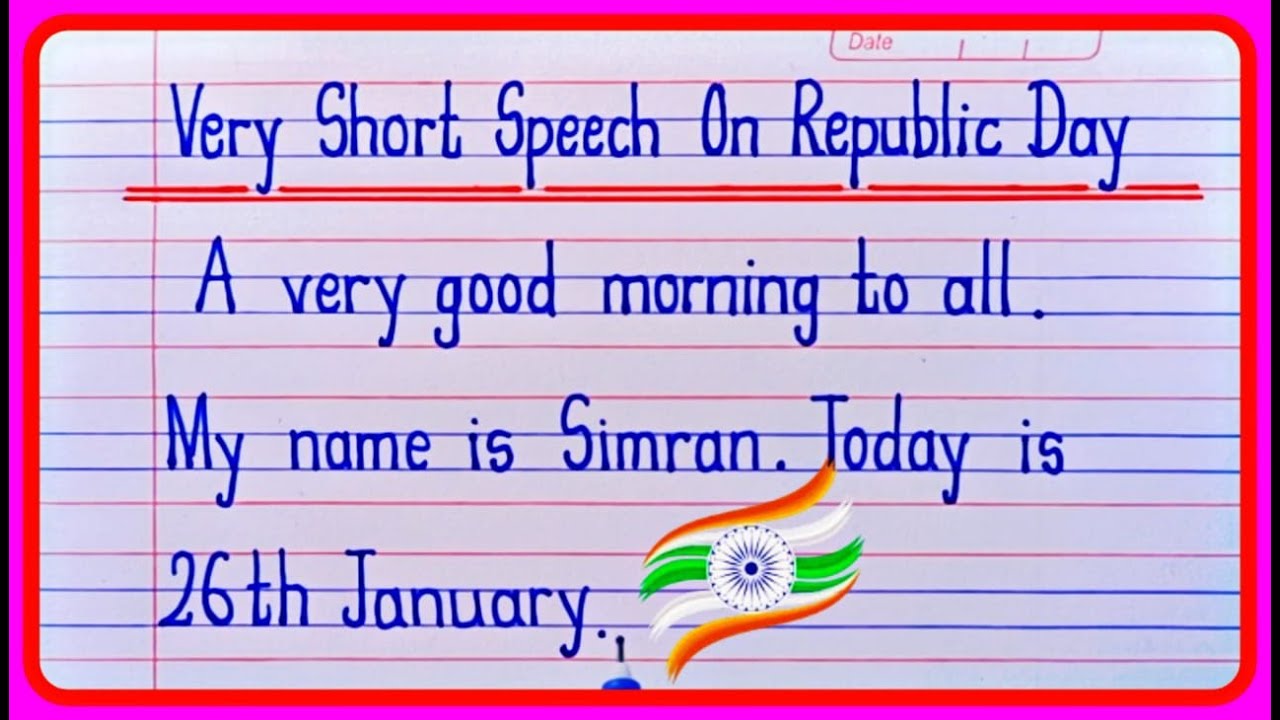 Date
Very Short Speech On Republic Day
A very good morning to all.
My name is Simran. Today is
26th January..